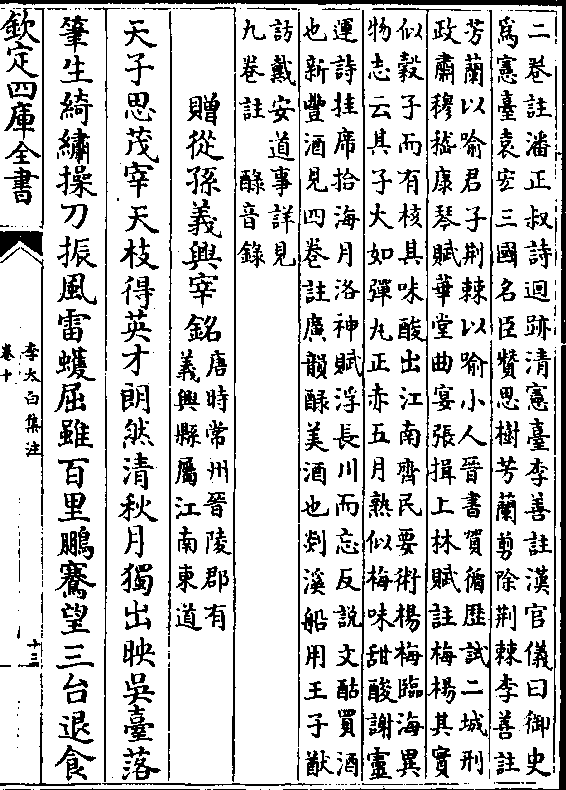 二卷註潘正叔詩迴跡清憲臺李善註漢官儀曰御史
爲憲臺袁宏三國名臣贊思樹芳蘭剪除荆棘李善註
芳蘭以喻君子荆棘以喻小人晉書賀循歷試二城刑
政肅穆嵇康琴賦華堂曲宴張揖上林賦註梅楊其實
似糓子而有核其味酸出江南齊民要術楊梅臨海異
物志云其子大如彈丸正赤五月熟似梅味甜酸謝靈
運詩挂席拾海月洛神賦浮長川而忘反説文酤買酒
也新豐酒見四卷註廣韻醁美酒也剡溪船用王子猷
訪戴安道事詳見
九卷註 醁音錄
贈從孫義興宰銘
唐時常州晉陵郡有
義興縣屬江南東道
天子思茂宰天枝得英才朗然清秋月獨出映吳臺落
筆生綺繡操刀振風雷蠖屈雖百里鵬騫望三台退食
欽定四庫全書
李太白集注
卷十
十三